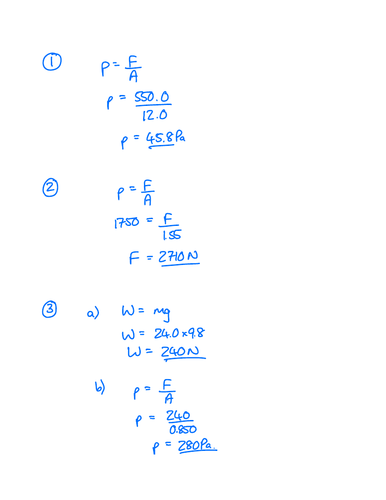 ① p = F/A
p = 550.0/12.0
p = 45.8 Pa
② p = F/A
1750 = F/1.55
F = 2710 N
③ a) W = mg
W = 24.0 × 9.8
W = 240 N
b) p = F/A
p = 240/0.850
p = 280 Pa.